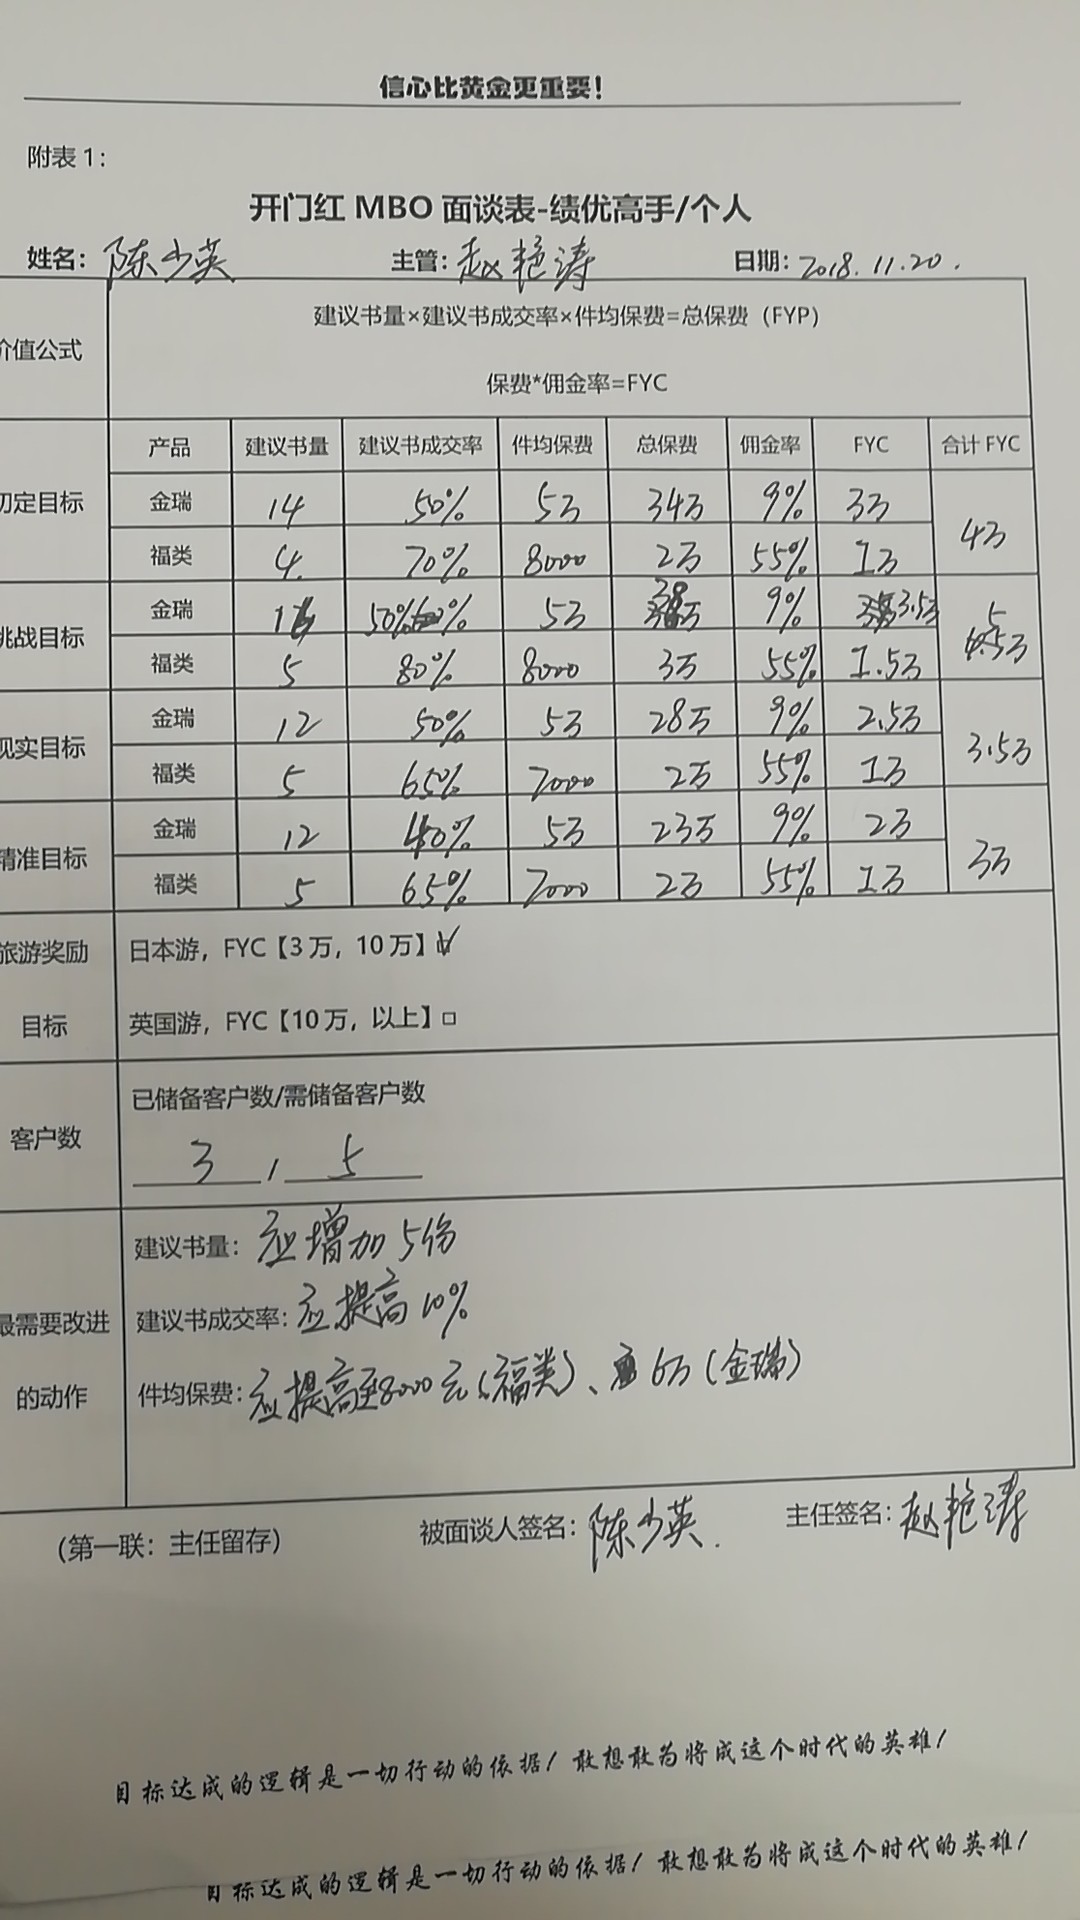 信心比黄金更重要！
附表1：
开门红MBO面谈表-绩优高手/个人
姓名：陈少英 主管：赵艳涛 日期：2018.11.20.
价值公式
建议书量×建议书成交率×件均保费=总保费（FYP）
保费*佣金率=FYC
产品 建议书量 建议书成交率 件均保费 总保费 佣金率 FYC 合计FYC
初定目标 金瑞 14 50% 5万 34万 9% 3万 4万
福类 4 70% 8000 2万 55% 1万
挑战目标 金瑞 50% 5万 38万 9% 3.5万 5万
福类 5 80% 8000 3万 55% 1.5万
现实目标 金瑞 12 50% 5万 28万 9% 2.5万 3.5万
福类 5 65% 7000 2万 55% 1万
精准目标 金瑞 12 40% 5万 23万 9% 2万 3万
福类 5 65% 7000 2万 55% 1万
旅游奖励目标
日本游，FYC【3万，10万】☑
英国游，FYC【10万，以上】□
客户数
已储备客户数/需储备客户数
3 / 5
最需要改进的动作
建议书量：应增加5份
建议书成交率：应提高10%
件均保费：应提高至8000元（福类）、6万（金瑞）
（第一联：主任留存） 被面谈人签名：陈少英. 主任签名：赵艳涛
目标达成的逻辑是一切行动的依据！敢想敢为将成这个时代的英雄！
目标达成的逻辑是一切行动的依据！敢想敢为将成这个时代的英雄！